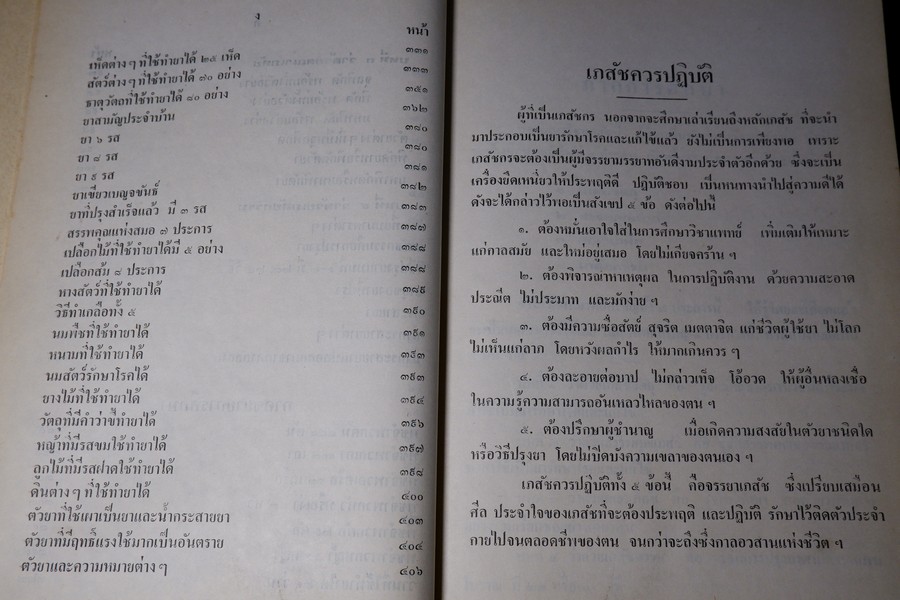 ง
หน้า
เห็ดต่างๆ ที่ใช้ทำยาได้ ๒๕ เห็ด ๓๓๑
สัตว์ต่างๆ ที่ใช้ทำยาได้ ๗๐ อย่าง ๓๓๓
ธาตุวัตถุที่ใช้ทำยาได้ ๘๐ อย่าง ๓๕๑
ยาสามัญประจำบ้าน ๓๖๒
ยา ๖ รส ๓๘๐
ยา ๘ รส ๓๘๐
ยา ๙ รส ๓๘๑
ยาเขียวเบญจขันธ์ ๓๘๒
ยาที่ปรุงสำเร็จแล้ว มี ๓ รส ๓๘๓
สรรพคุณแห่งสมอ ๗ ประการ ๓๘๗
เปลือกไม้ที่ใช้ทำยาได้มี ๕ อย่าง ๓๘๘
เปลือกส้ม ๘ ประการ ๓๘๘
หางสัตว์ที่ใช้ทำยาได้ ๓๘๙
วิธีทำเกลือทั้ง ๕ ๓๙๐
นมพืชที่ใช้ทำยาได้ ๓๙๑
หนามที่ใช้ทำยาได้ ๓๙๓
นมสัตว์รักษาโรคได้ ๓๙๓
ยางไม้ที่ใช้ทำยาได้ ๓๙๔
วัตถุที่มีคำว่าขี้ทำยาได้ ๓๙๖
หญ้าที่มีรสขมใช้ทำยาได้ ๓๙๗
ลูกไม้ที่มีรสฝาดใช้ทำยาได้ ๓๙๘
ดินต่างๆ ที่ใช้ทำยาได้ ๔๐๐
ตัวยาที่ใช้เผาเป็นยาและน้ำกระสายยา ๔๐๓
ตัวยาที่มีฤทธิ์แรงใช้มากเป็นอันตราย ๔๐๔
ตัวยาและความหมายต่างๆ ๔๐๖
เภสัชควรปฏิบัติ
ผู้ที่เป็นเภสัชกร นอกจากจะศึกษาเล่าเรียนถึงหลักเภสัช ที่จะนำ
มาประกอบเป็นยารักษาโรคและแก้ไข้แล้ว ยังไม่เป็นการเพียงพอ เพราะ
เภสัชกรจะต้องเป็นผู้มีจรรยามรรยาทอันดีงามประจำตัวอีกด้วย ซึ่งจะเป็น
เครื่องยึดเหนี่ยวให้ประพฤติดี ปฏิบัติชอบ เป็นหนทางนำไปสู่ความดีได้
ดังจะได้กล่าวไว้พอเป็นสังเขป ๕ ข้อ ดังต่อไปนี้
๑. ต้องหมั่นเอาใจใส่ในการศึกษาวิชาแพทย์ เพิ่มเติมให้เหมาะ
แก่กาลสมัย และใหม่อยู่เสมอ โดยไม่เกียจคร้าน ฯ
๒. ต้องพิจารณาหาเหตุผล ในการปฏิบัติงาน ด้วยความสะอาด
ประณีต ไม่ประมาท และมักง่าย ฯ
๓. ต้องมีความซื่อสัตย์ สุจริต เมตตาจิต แก่ชีวิตผู้ใช้ยา ไม่โลภ
ไม่เห็นแก่ลาภ โดยหวังผลกำไร ให้มากเกินควร ๆ
๔. ต้องละอายต่อบาป ไม่กล่าวเท็จ โอ้อวด ให้ผู้อื่นหลงเชื่อ
ในความรู้ความสามารถอันเหลวไหลของตน ฯ
๕. ต้องปรึกษาผู้ชำนาญ เมื่อเกิดความสงสัยในตัวยาชนิดใด
หรือวิธีปรุงยา โดยไม่ปิดบังความเขลาของตนเอง ฯ
เภสัชควรปฏิบัติทั้ง ๕ ข้อนี้ คือจรรยาเภสัช ซึ่งเปรียบเสมือน
ศีล ประจำใจของเภสัชที่จะต้องประพฤติ และปฏิบัติ รักษาไว้ติดตัวประจำ
กายไปจนตลอดชีพของตน จนกว่าจะถึงซึ่งกาลอวสานแห่งชีวิต ฯ